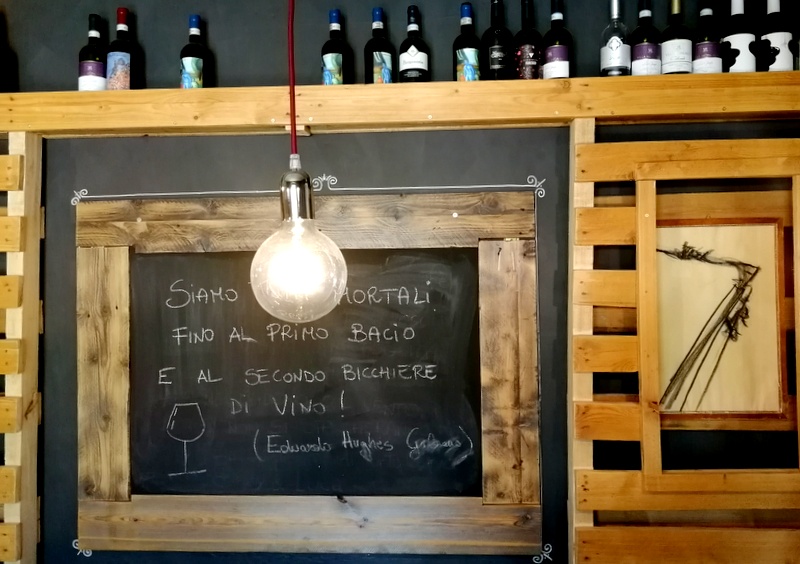 SIAMO MORTALI
FINO AL PRIMO BACIO
E AL SECONDO BICCHIERE
DI VINO!
(Eduardo Hughes Galeano)